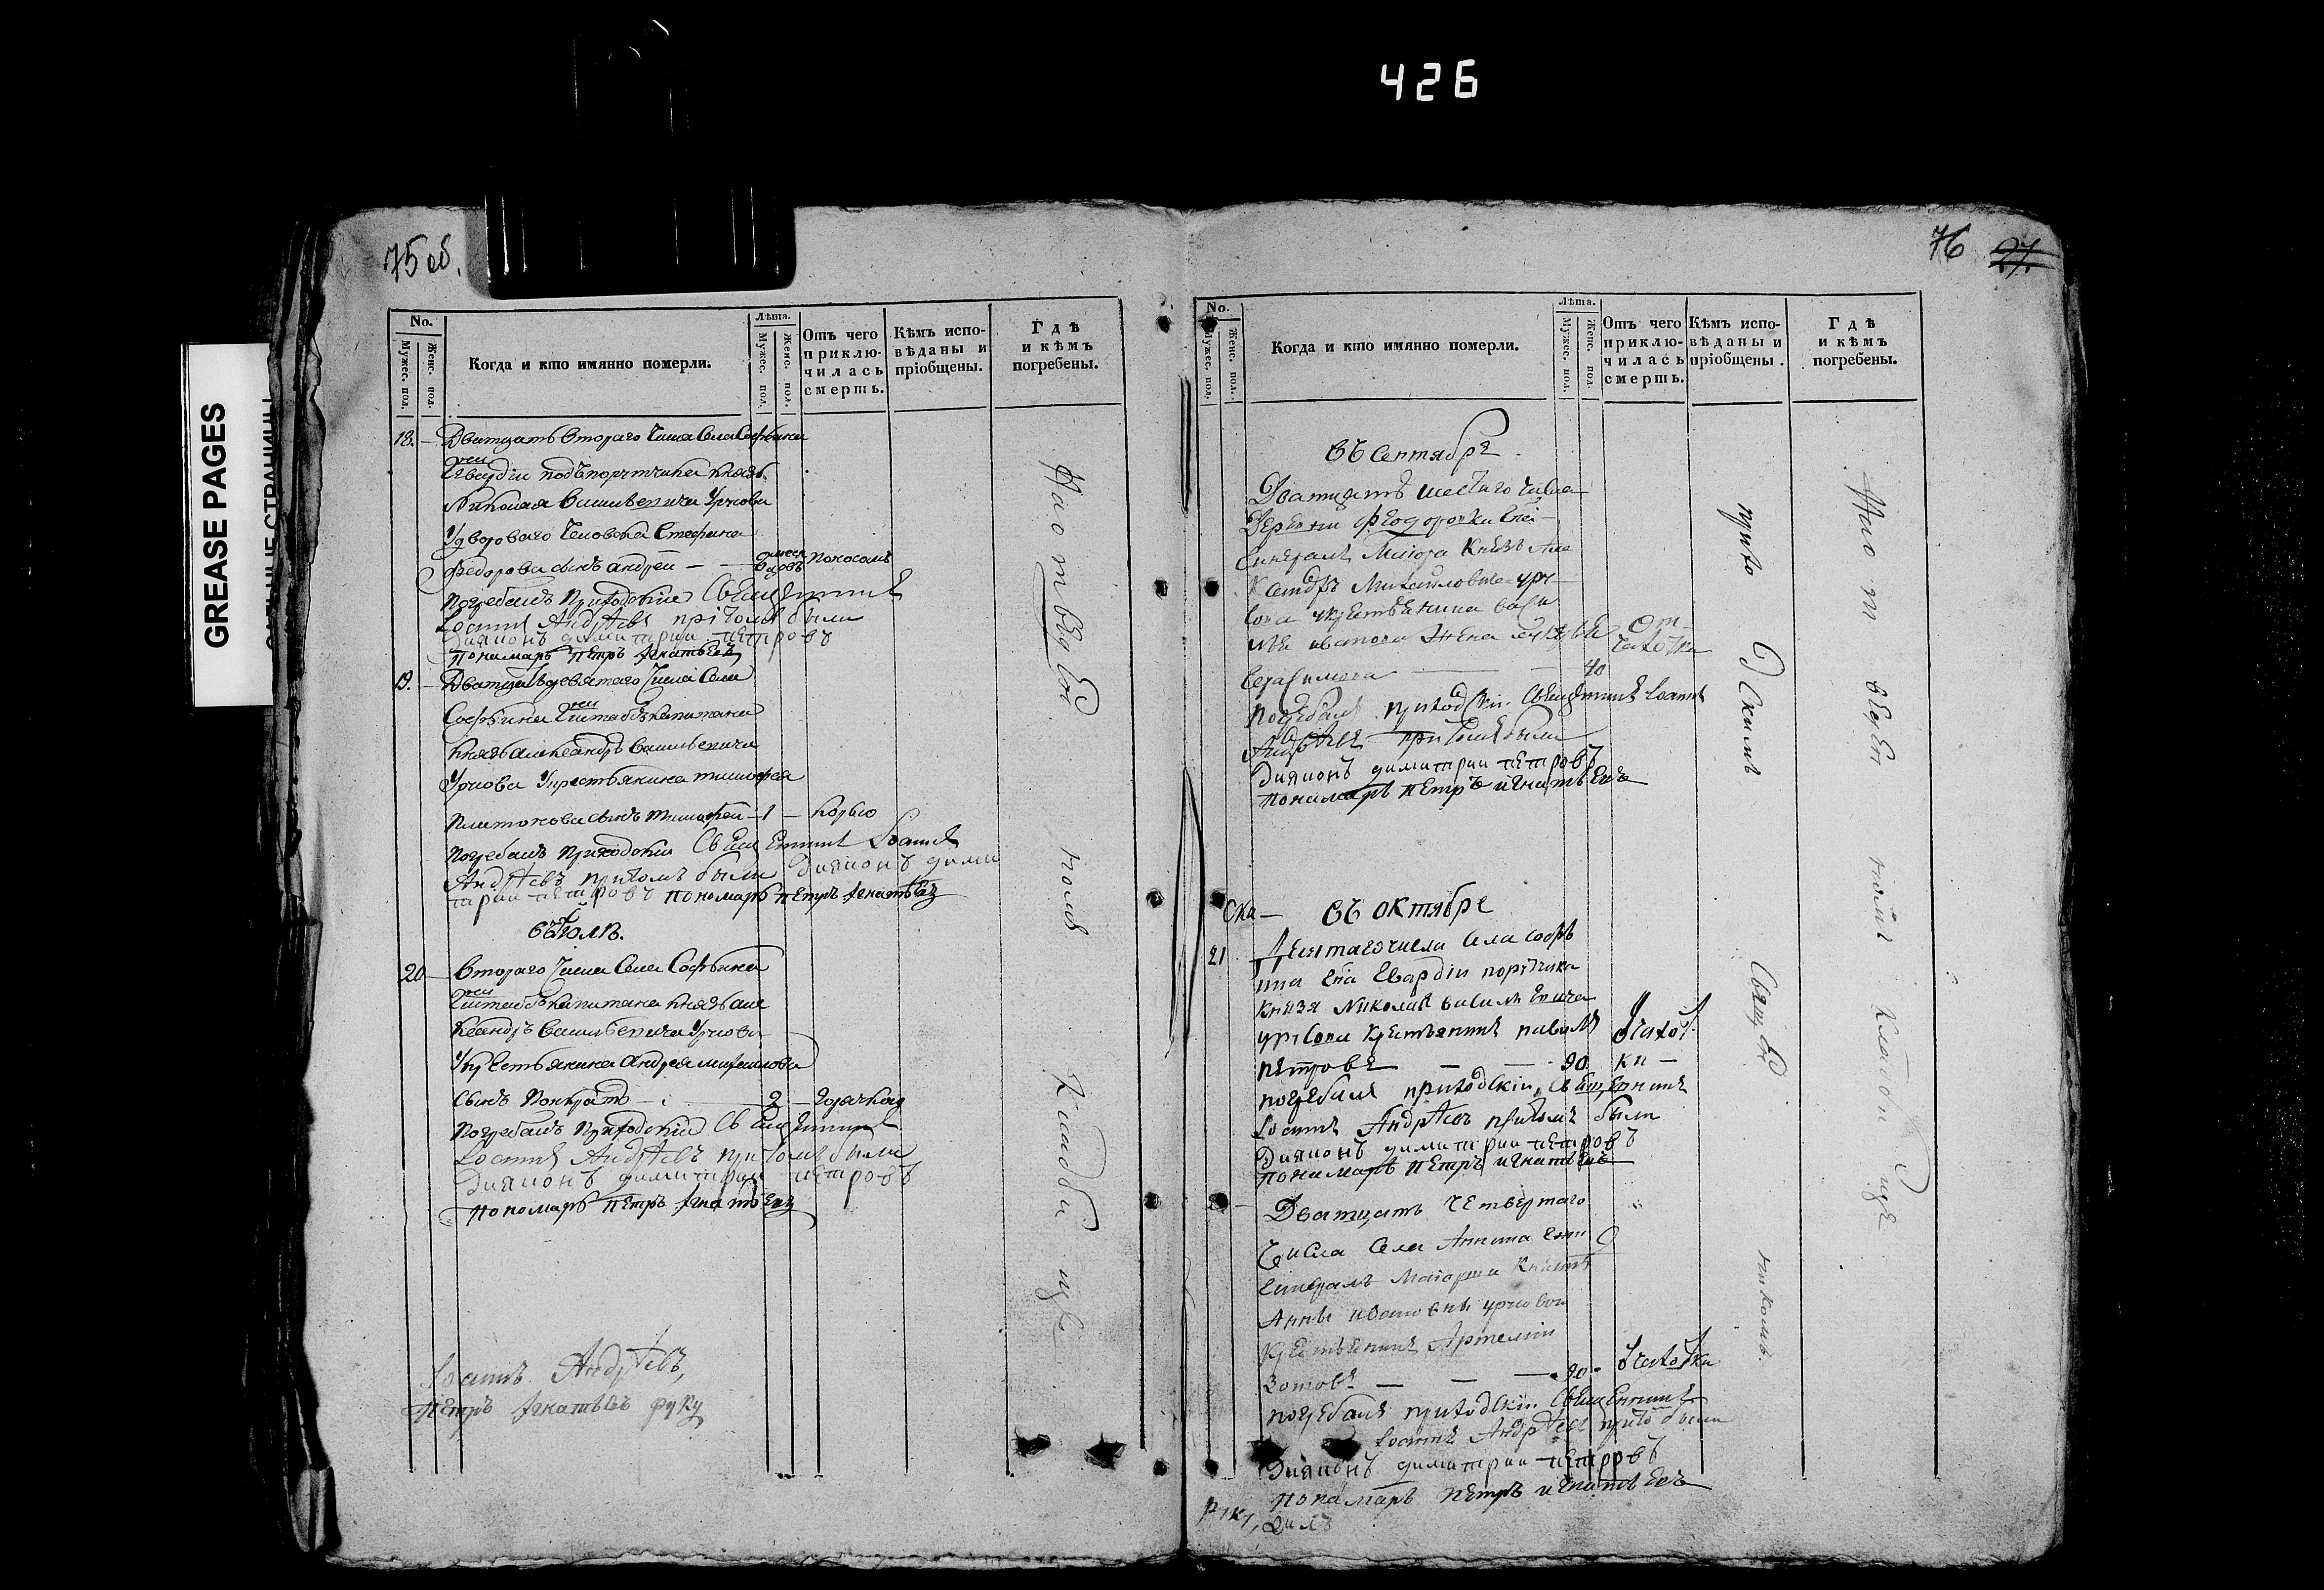 426
GREASE PAGES
75 об.
No.
Мужес. пол.
Женс. пол.
Когда и кто имянно померли.
Лѣта.
Мужес. пол.
Женс. пол.
Отъ чего приклю-
чилась смерть.
Кѣмъ испо-
вѣданы и
пріобщены.
Гдѣ
и кѣмъ
погребены.
18. – Дватцать втораго числа села Софьина
Гвардіи подъпорутчика князь
Николая Васильевича Урусова
У двороваго человека Стефана
Федорова сынъ андрей –
поносомъ
погребалъ приходскіи Священникъ
Іоаннъ Андрѣевъ при томъ были
Диаконъ димитрии петровъ
Пономарь Петръ Игнатьевъ
19. – Дватцать девятаго числа села
Софьина штабсъ капитана
князь александръ васильевича
Урусова У крестьянина тимофея
Платонова сынъ тимофеи – 1 – корью
погребалъ приходскіи Священникъ Іоаннъ
Андрѣевъ при томъ были Диаконъ дими
трии петровъ пономарь петръ Игнатьевъ
въ Іюлѣ.
20 втораго числа села Софьина
штабсъ капитана князь але
ксандръ васильевича Урусова
У крестьянина андрея михаилова
сынъ Понкрато – 2 – горячкою
погребалъ приходскіи Священникъ
Іоаннъ Андрѣевъ при томъ были
Диаконъ димитрии петровъ
пономарь петръ Игнатьевъ
Іоаннъ Андрѣевъ,
Петръ Игнатьевъ руку
На отвед
номъ
Кладби
ще
76 27.
No.
Мужес. пол.
Женс. пол.
Когда и кто имянно померли.
Лѣта.
Мужес. пол.
Женс. пол.
Отъ чего приклю-
чилась смерть.
Кѣмъ испо-
вѣданы и
пріобщены.
Гдѣ
и кѣмъ
погребены.
въ Сентябрѣ
Дватцать шестаго числа
Деревни Феодоровки
Генералъ Маіора Князь Але
ксандръ Михаиловича Уру
сова у крестьянина васи
лья иванова жена
От чахотки
Герасимова – 40
погребалъ приходскіи Священникъ Іоаннъ
Андрѣевъ при томъ были
Диаконъ димитрии петровъ
Пономарь петръ игнатьевъ
въ октябре
21 Десятаго числа села софь
ина Гвардіи порутчика
князя Николая васильевича
урусова крестьянинъ павелъ
петровъ – – 90. чахот
ки –
погребалъ приходскіи Священникъ
Іоаннъ Андрѣевъ при томъ были
Диаконъ димитрии петровъ
пономарь петръ игнатьевъ
Дватцать четвертаго
числа села Аннина
Генералъ Маіорши Княгин
Анны ивановны урусовои
крестьянинъ Артемии
Зотовъ – – – 90 – чахотка
погребалъ приходскіи Священникъ
Іоаннъ Андрѣевъ при томъ были
Диаконъ димитрии петровъ
пономарь петръ игнатьевъ
прихо
дскимъ
Священ
никомъ.
На от
веден
номъ
Кладби
щѣ